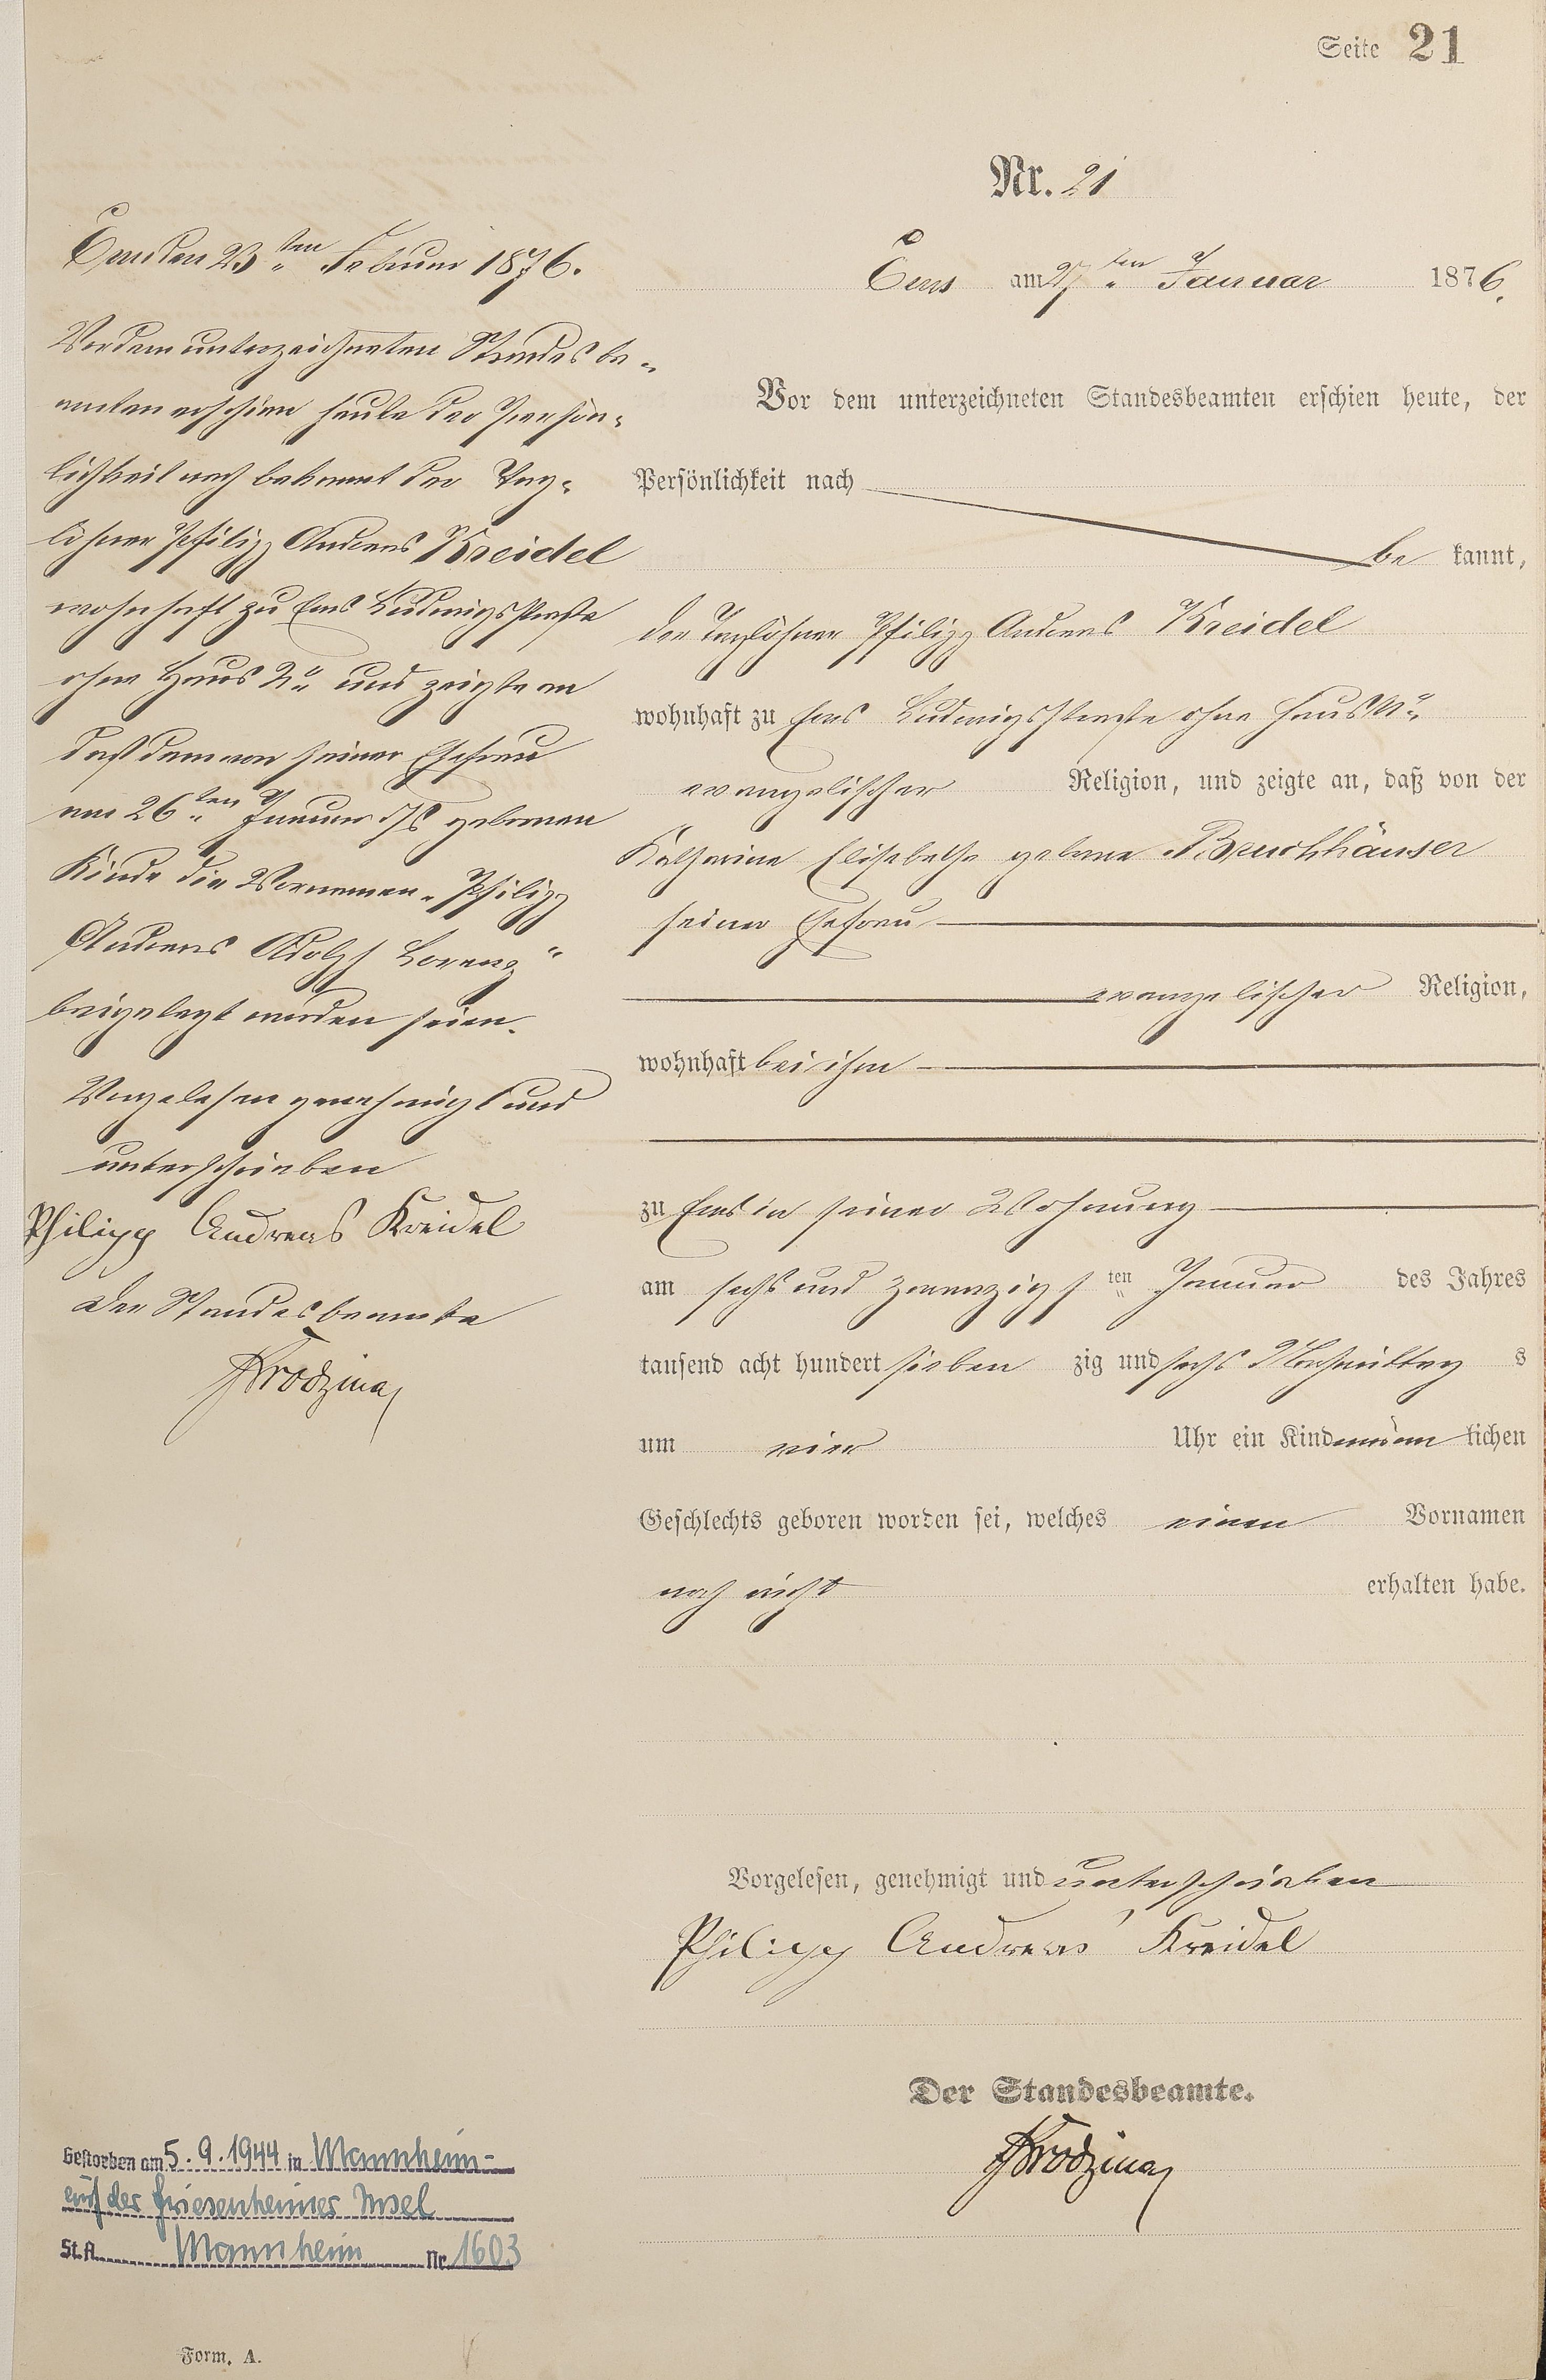 Seite 21
Nr. 21
Ems am 27ten Januar 1876.
Vor dem unterzeichneten Standesbeamten erschien heute, der
Persönlichkeit nach
be kannt,
der Taglöhner Philipp Andreas Kreidel
wohnhaft zu Ems Ludwigsstraße ohne Haus No
evangelischer Religion, und zeigte an, daß von der
Katharine Elisabethe geborne Bruchhäuser
seiner Ehefrau
evangelischer Religion,
wohnhaft bei ihm
zu Ems in seiner Wohnung
am sechs und zwanzigsten Januar des Jahres
tausend acht hundert sieben zig und sechs Nachmittag s
um vier Uhr ein Kind männ lichen
Geschlechts geboren worden sei, welches einen Vornamen
noch nicht erhalten habe.
Vorgelesen, genehmigt und unterschrieben
Philipp Andreas Kreidel
Der Standesbeamte.
Ems den 23ten Februar 1876.
Vor dem unterzeichneten Standesbe-
amten erschien heute der Persön-
lichkeit nach bekannt der Tag-
löhner Philipp Andreas Kreidel
wohnhaft zu Ems Ludwigsstraße
ohne Haus No und zeigte an
daß dem von seiner Ehefrau
am 26ten Januar d/Js gebornen
Kinde die Vornamen „Philipp
Andreas Adolph Lorenz"
beigelegt worden seien.
Vorgelesen genehmigt und
unterschrieben
Philipp Andreas Kreidel
Der Standesbeamte
Gestorben am 5.9.1944 in Mannheim-
auf der Friesenheimer Insel
St.A. Mannheim Nr. 1603
Form. A.